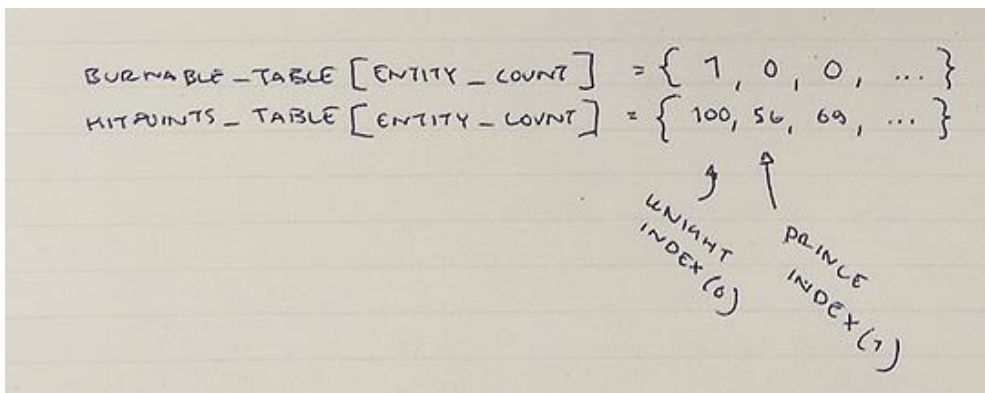 BURNABLE_TABLE [ENTITY_COUNT] = { 1, 0, 0, ... }
HITPOINTS_TABLE [ENTITY_COUNT] = { 100, 56, 69, ... }
KNIGHT
INDEX (0)
PRINCE
INDEX (1)